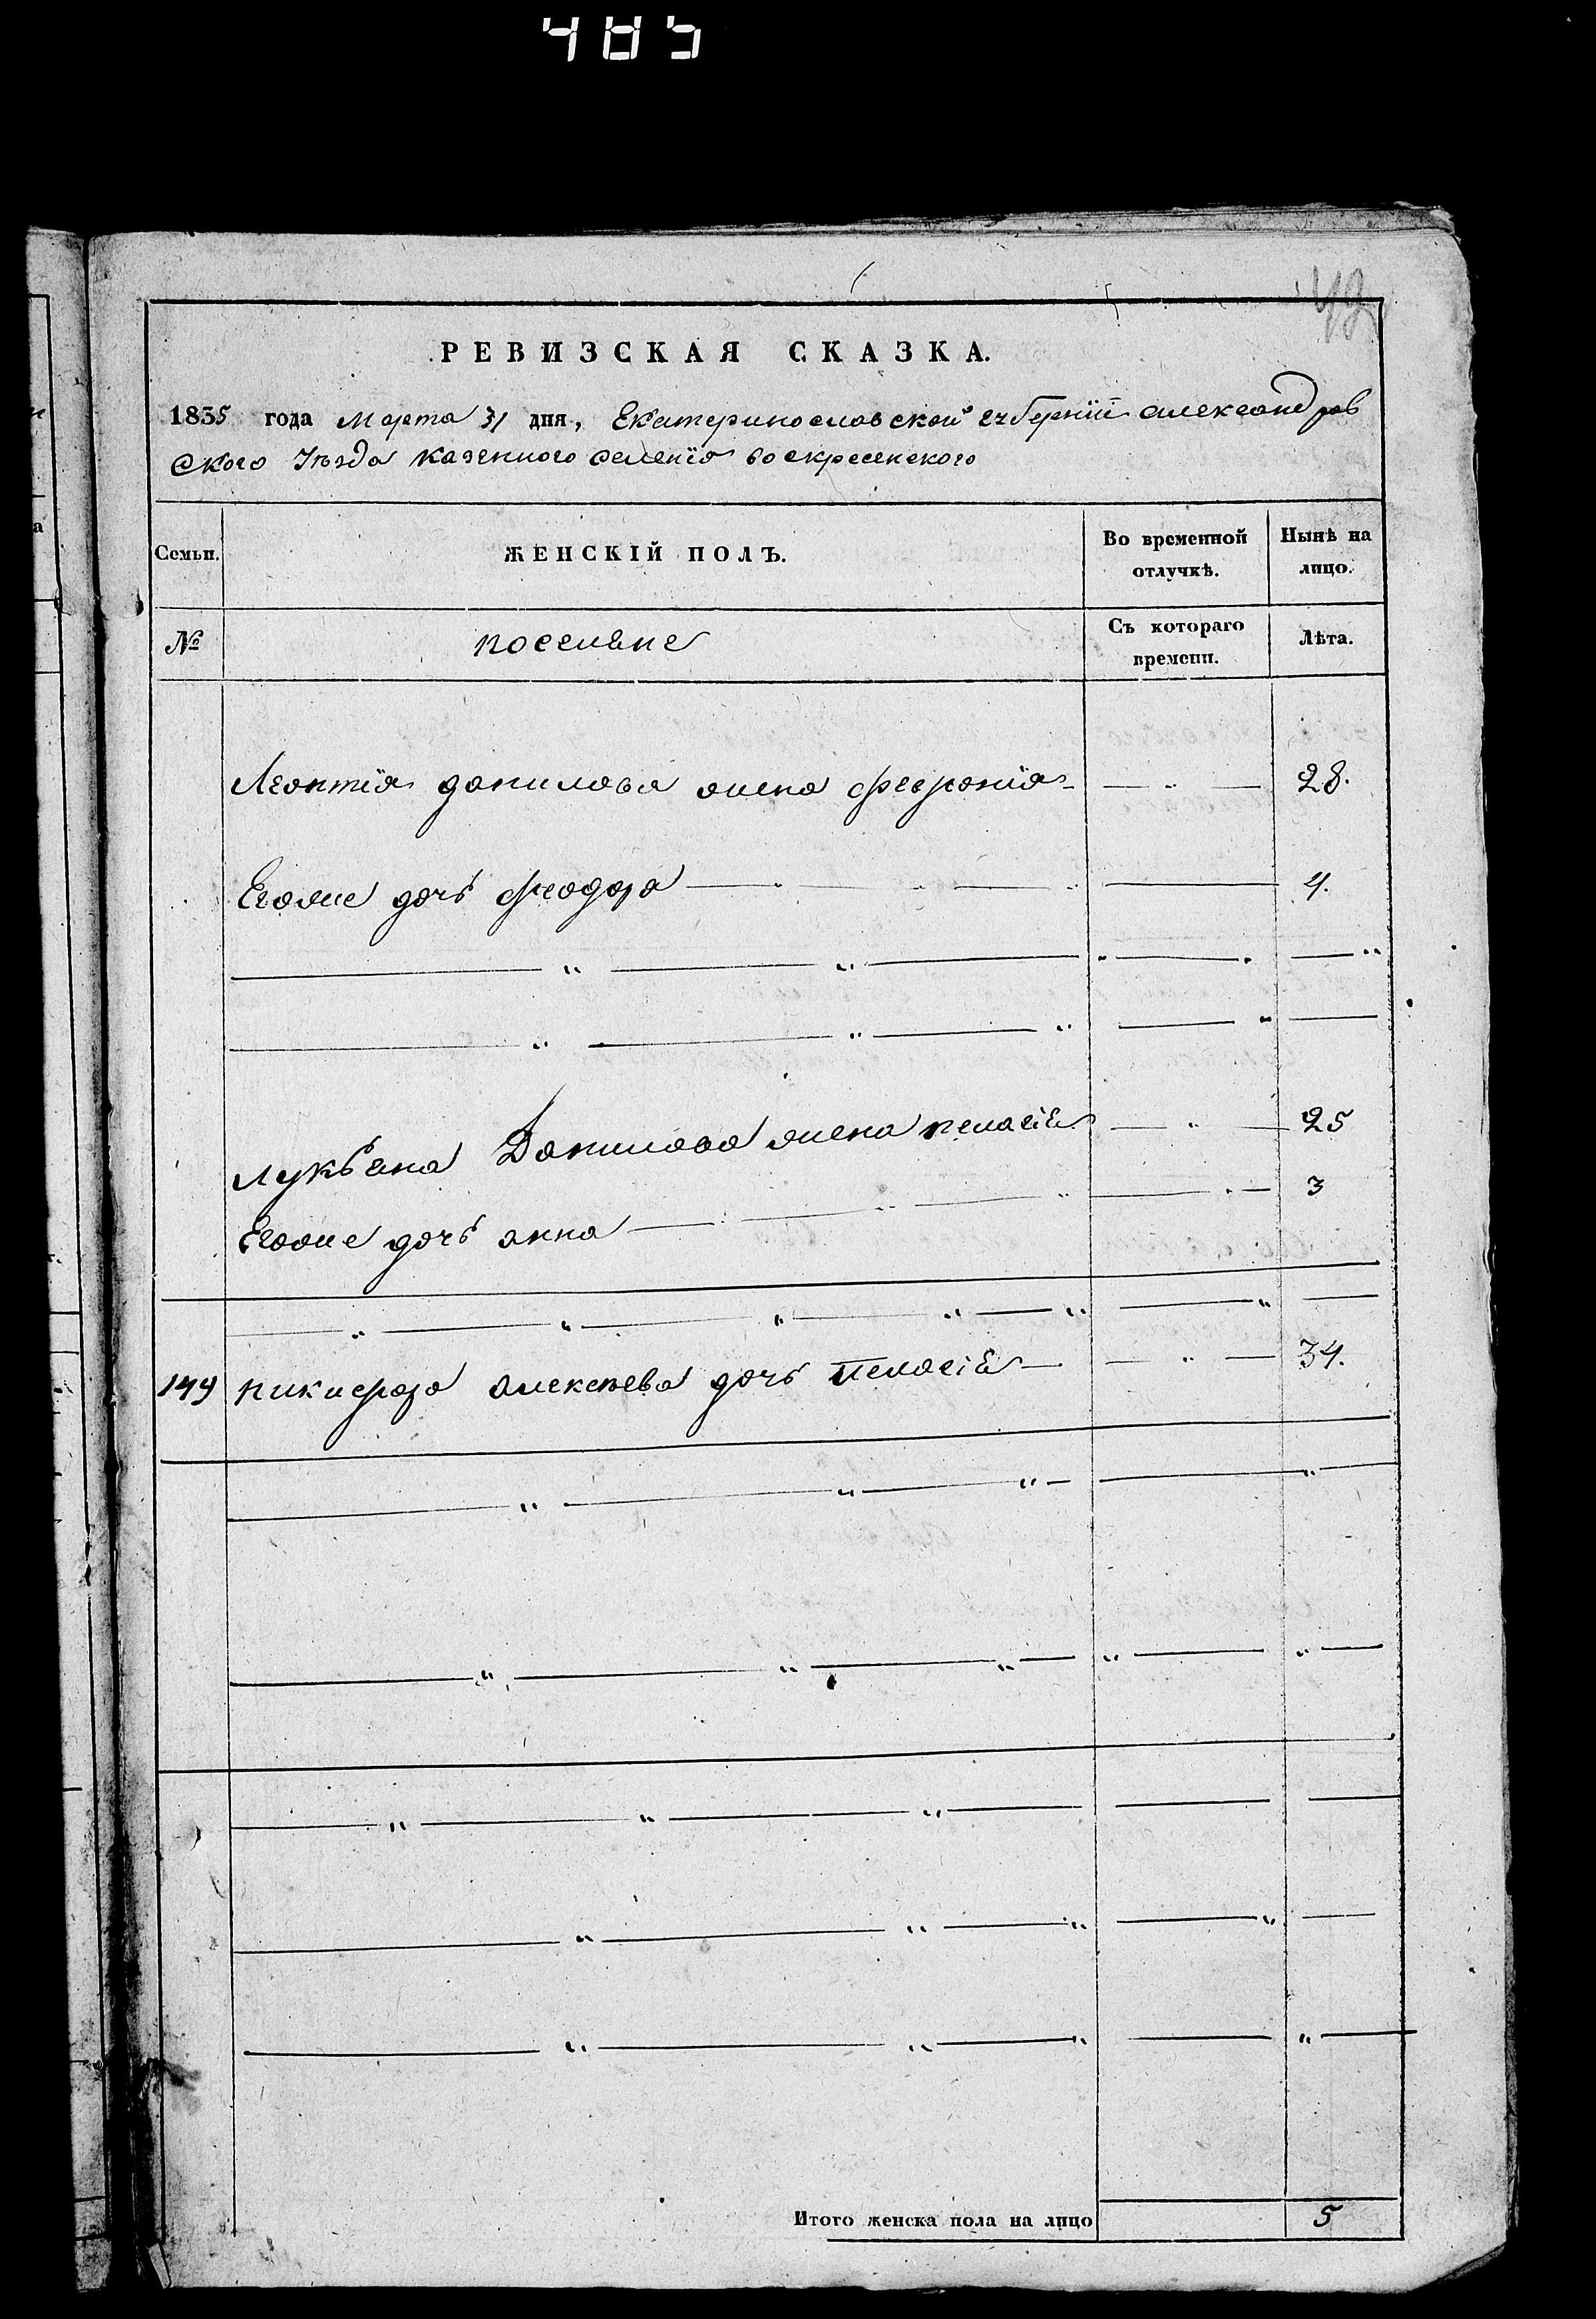 485
49
РЕВИЗСКАЯ СКАЗКА.
1835 года Марта 31 дня, Екатеринославской губерніи александров
ского Уѣзда казенного селенія воскресенского
Семьи. ЖЕНСКІЙ ПОЛЪ. Во временной отлучкѣ. Нынѣ на лицо.
№ поселяне Съ котораго времени. Лѣта.
Леонтія данилова жена феврония 28.
Егоже дочь феодора 4.
лукьяна Данилова жена пелагія 25
Егоже дочь анна 3
149 никифора алексѣева дочь пелагія 34.
Итого женска пола на лицо 5